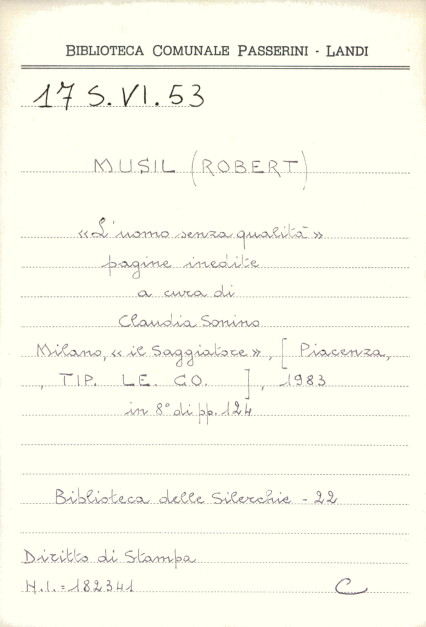 BIBLIOTECA COMUNALE PASSERINI - LANDI
17 S. VI. 53
MUSIL (ROBERT)
«L'uomo senza qualità»
pagine inedite
a cura di
Claudia Sonino
Milano, «il Saggiatore», [Piacenza,
, TIP. LE. CO. ], 1983
in 8° di pp. 124
Biblioteca delle Silerchie - 22
Diritto di Stampa
N.I. = 182341 C